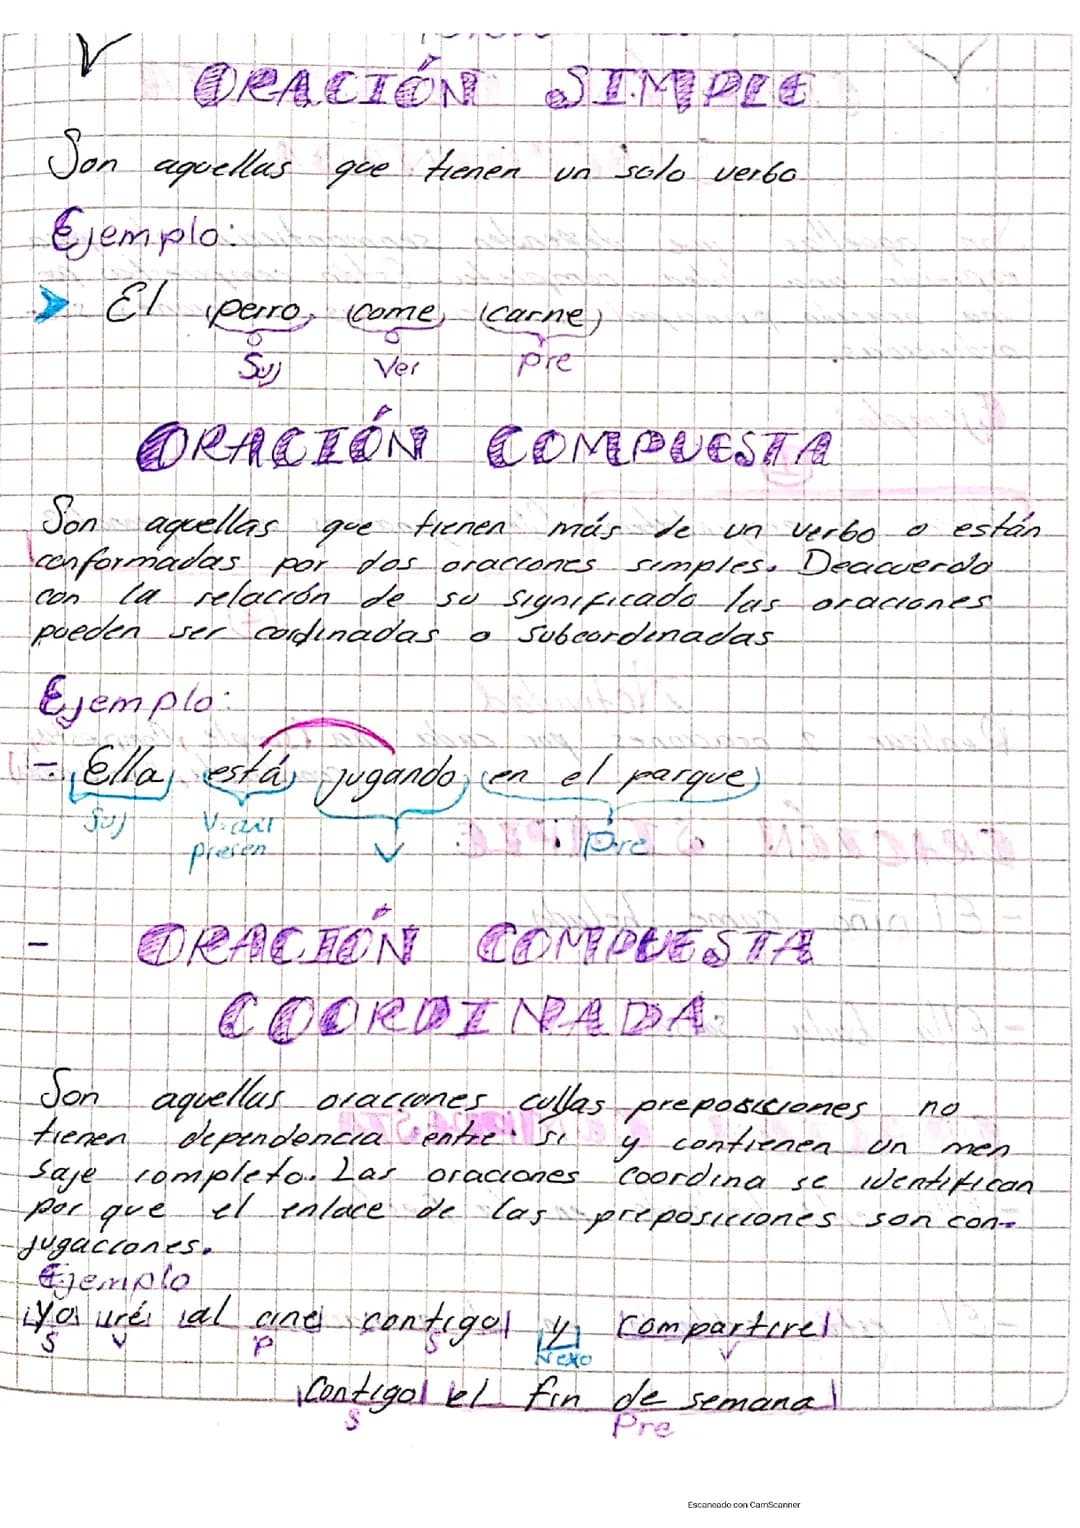 ORACIÓN SIMPLE
Son aquellas que tienen un solo verbo
Ejemplo:
El perro come carne
Suj Ver pre
ORACIÓN COMPUESTA
Son aquellas que tienen más de un verbo o están
conformadas por dos oraciones simples. Deacuerdo
con la relación de su significado las oraciones
pueden ser cordinadas o subcordinadas
Ejemplo:
-. Ella está jugando en el parque
Suj V. aux V Pre
presen
- ORACIÓN COMPUESTA
COORDINADA
Son aquellas oraciones cullas preposiciones no
tienen dependencia entre si y contienen un men
saje completo. Las oraciones coordina se identifican
por que el enlace de las preposiciones son con-
jugaciones.
Ejemplo
Yo iré al cine contigo y compartire
S V P S Nexo V
Contigo el fin de semana
S Pre
Escaneado con CamScanner